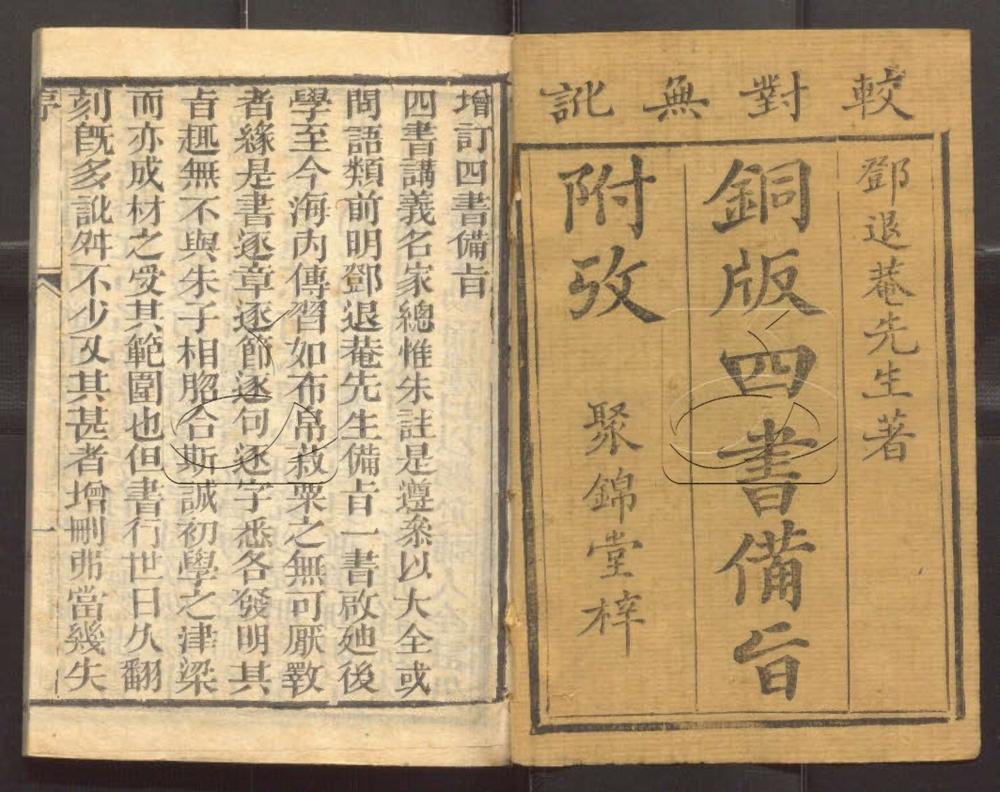 較對無訛
鄧退菴先生著
銅版四書備旨
附攷
聚錦堂梓
增訂四書備旨
四書講義名家總惟朱註是遵叅以大全或
問語類前明鄧退菴先生備旨一書啟廸後
學至今海內傳習如布帛菽粟之無可厭斁
者緣是書逐章逐節逐句逐字悉各發明其
旨趣無不與朱子相脗合斯誠初學之津梁
而亦成材之受其範圍也但書行世日久翻
刻旣多訛舛不少又其甚者增刪弗當幾失
序
一